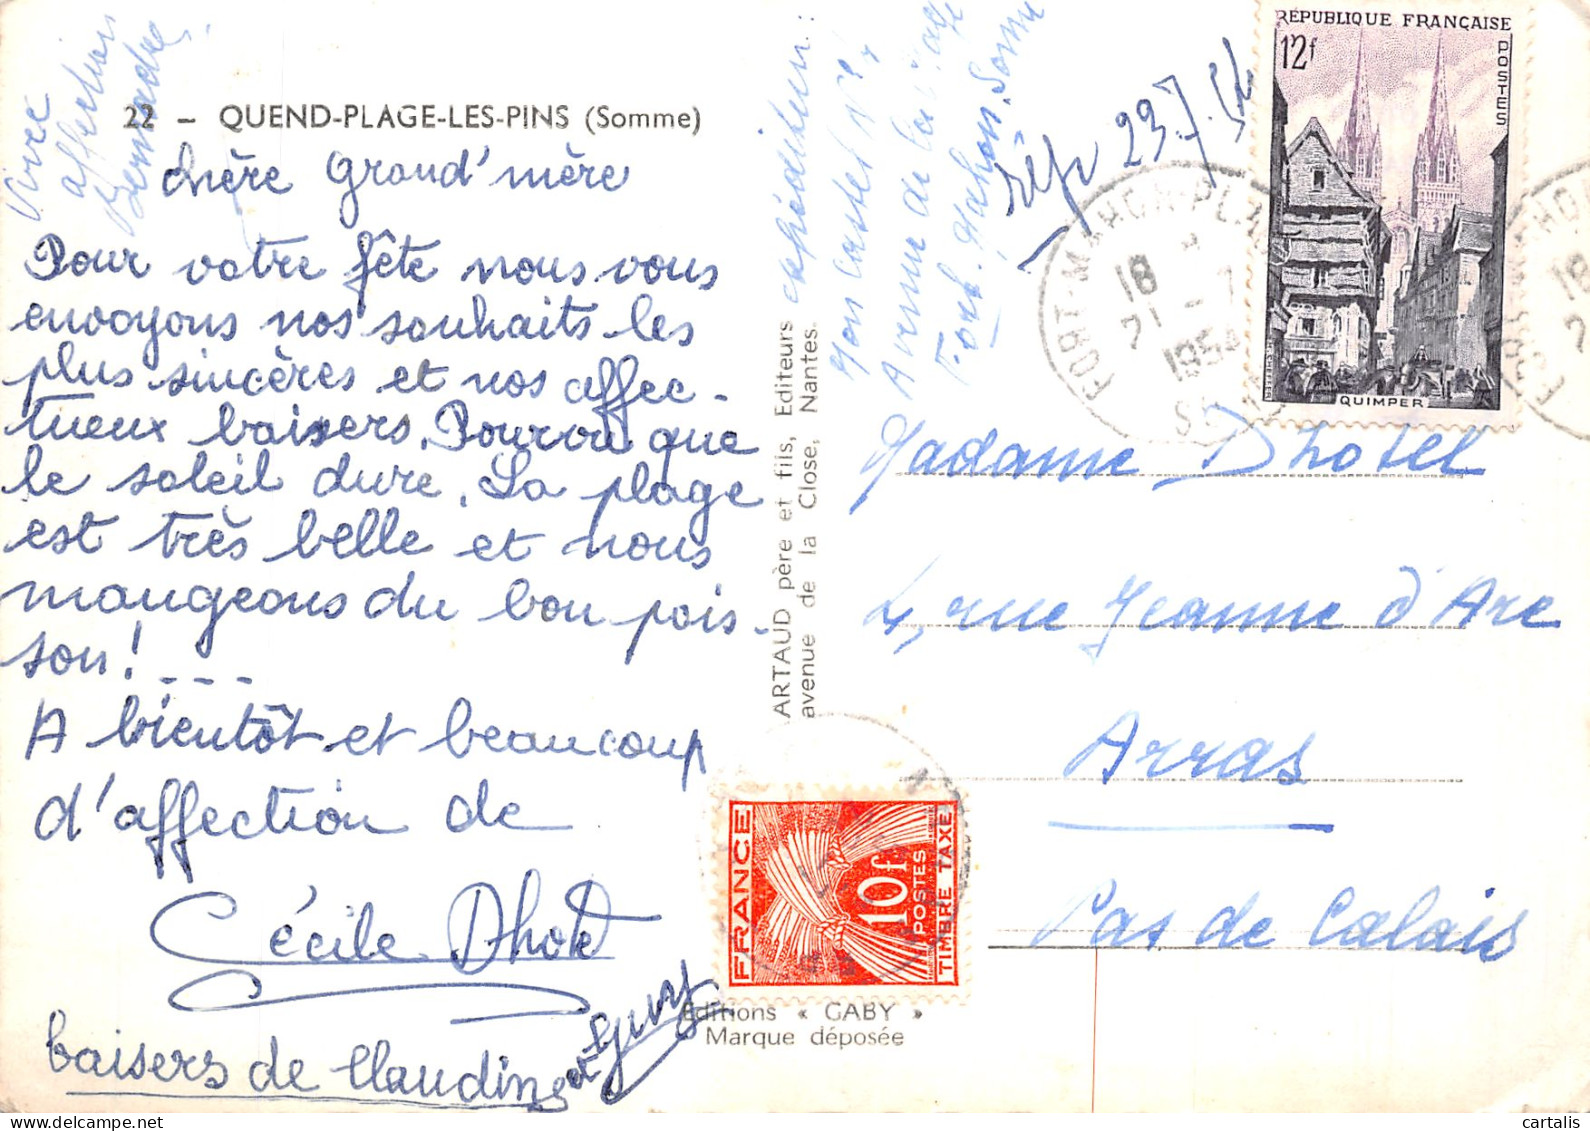 22 - QUEND-PLAGE-LES-PINS (Somme)
Vive
affection
Bernadette
chère Grand'mère
Pour votre fête nous vous
envoyons nos souhaits les
plus sincères et nos affec-
tueux baisers. Pourvu que
le soleil dure. La plage
est très belle et nous
mangeons du bon pois-
son! ---
A bientôt et beaucoup
d'affection de
Cécile Dhotel
baisers de Claudine et Guy
ARTAUD père et fils, Editeurs
avenue de la Close, Nantes.
expéditeur:
Mon Castel
Avenue de la Plage
Fort-Mahon. Somme
Rép 23.7.54
RÉPUBLIQUE FRANÇAISE
12f
POSTES
QUIMPER
FORT-MAHON-PLAGE
18
21-7
1954
FORT-MAHON
18
2
Madame Dhotel
4, rue Jeanne d'Arc
Arras
Pas de Calais
FRANCE
10f
POSTES
TIMBRE TAXE
Editions « GABY »
Marque déposée
cartalis.com